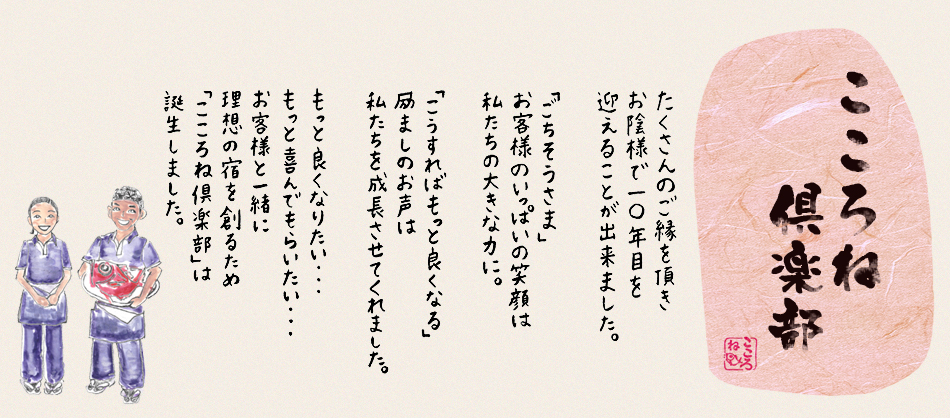 こころね
倶楽部
たくさんのご縁を頂き
お陰様で一〇年目を
迎えることが出来ました。
『ごちそうさま』
お客様のいっぱいの笑顔は
私たちの大きな力に。
「こうすればもっと良くなる」
励ましのお声は
私たちを成長させてくれました。
もっと良くなりたい・・・
もっと喜んでもらいたい・・・
お客様と一緒に
理想の宿を創るため
「こころね倶楽部」は
誕生しました。
こころ